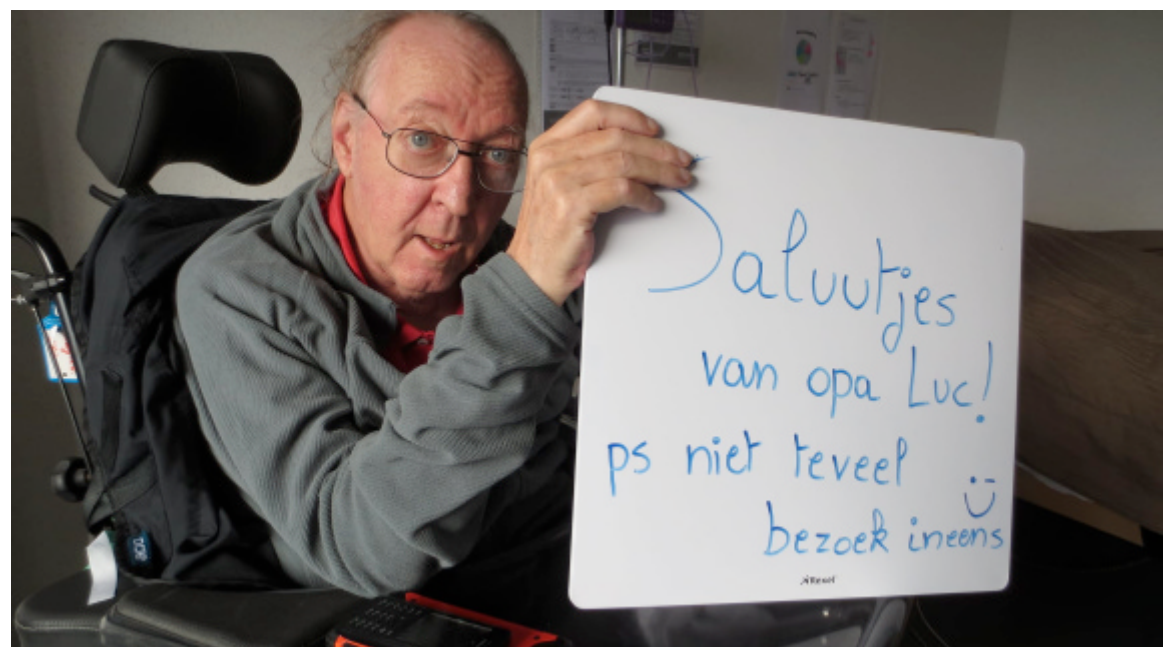 Saluutjes
van opa Luc!
ps niet teveel
bezoek ineens
Rexel